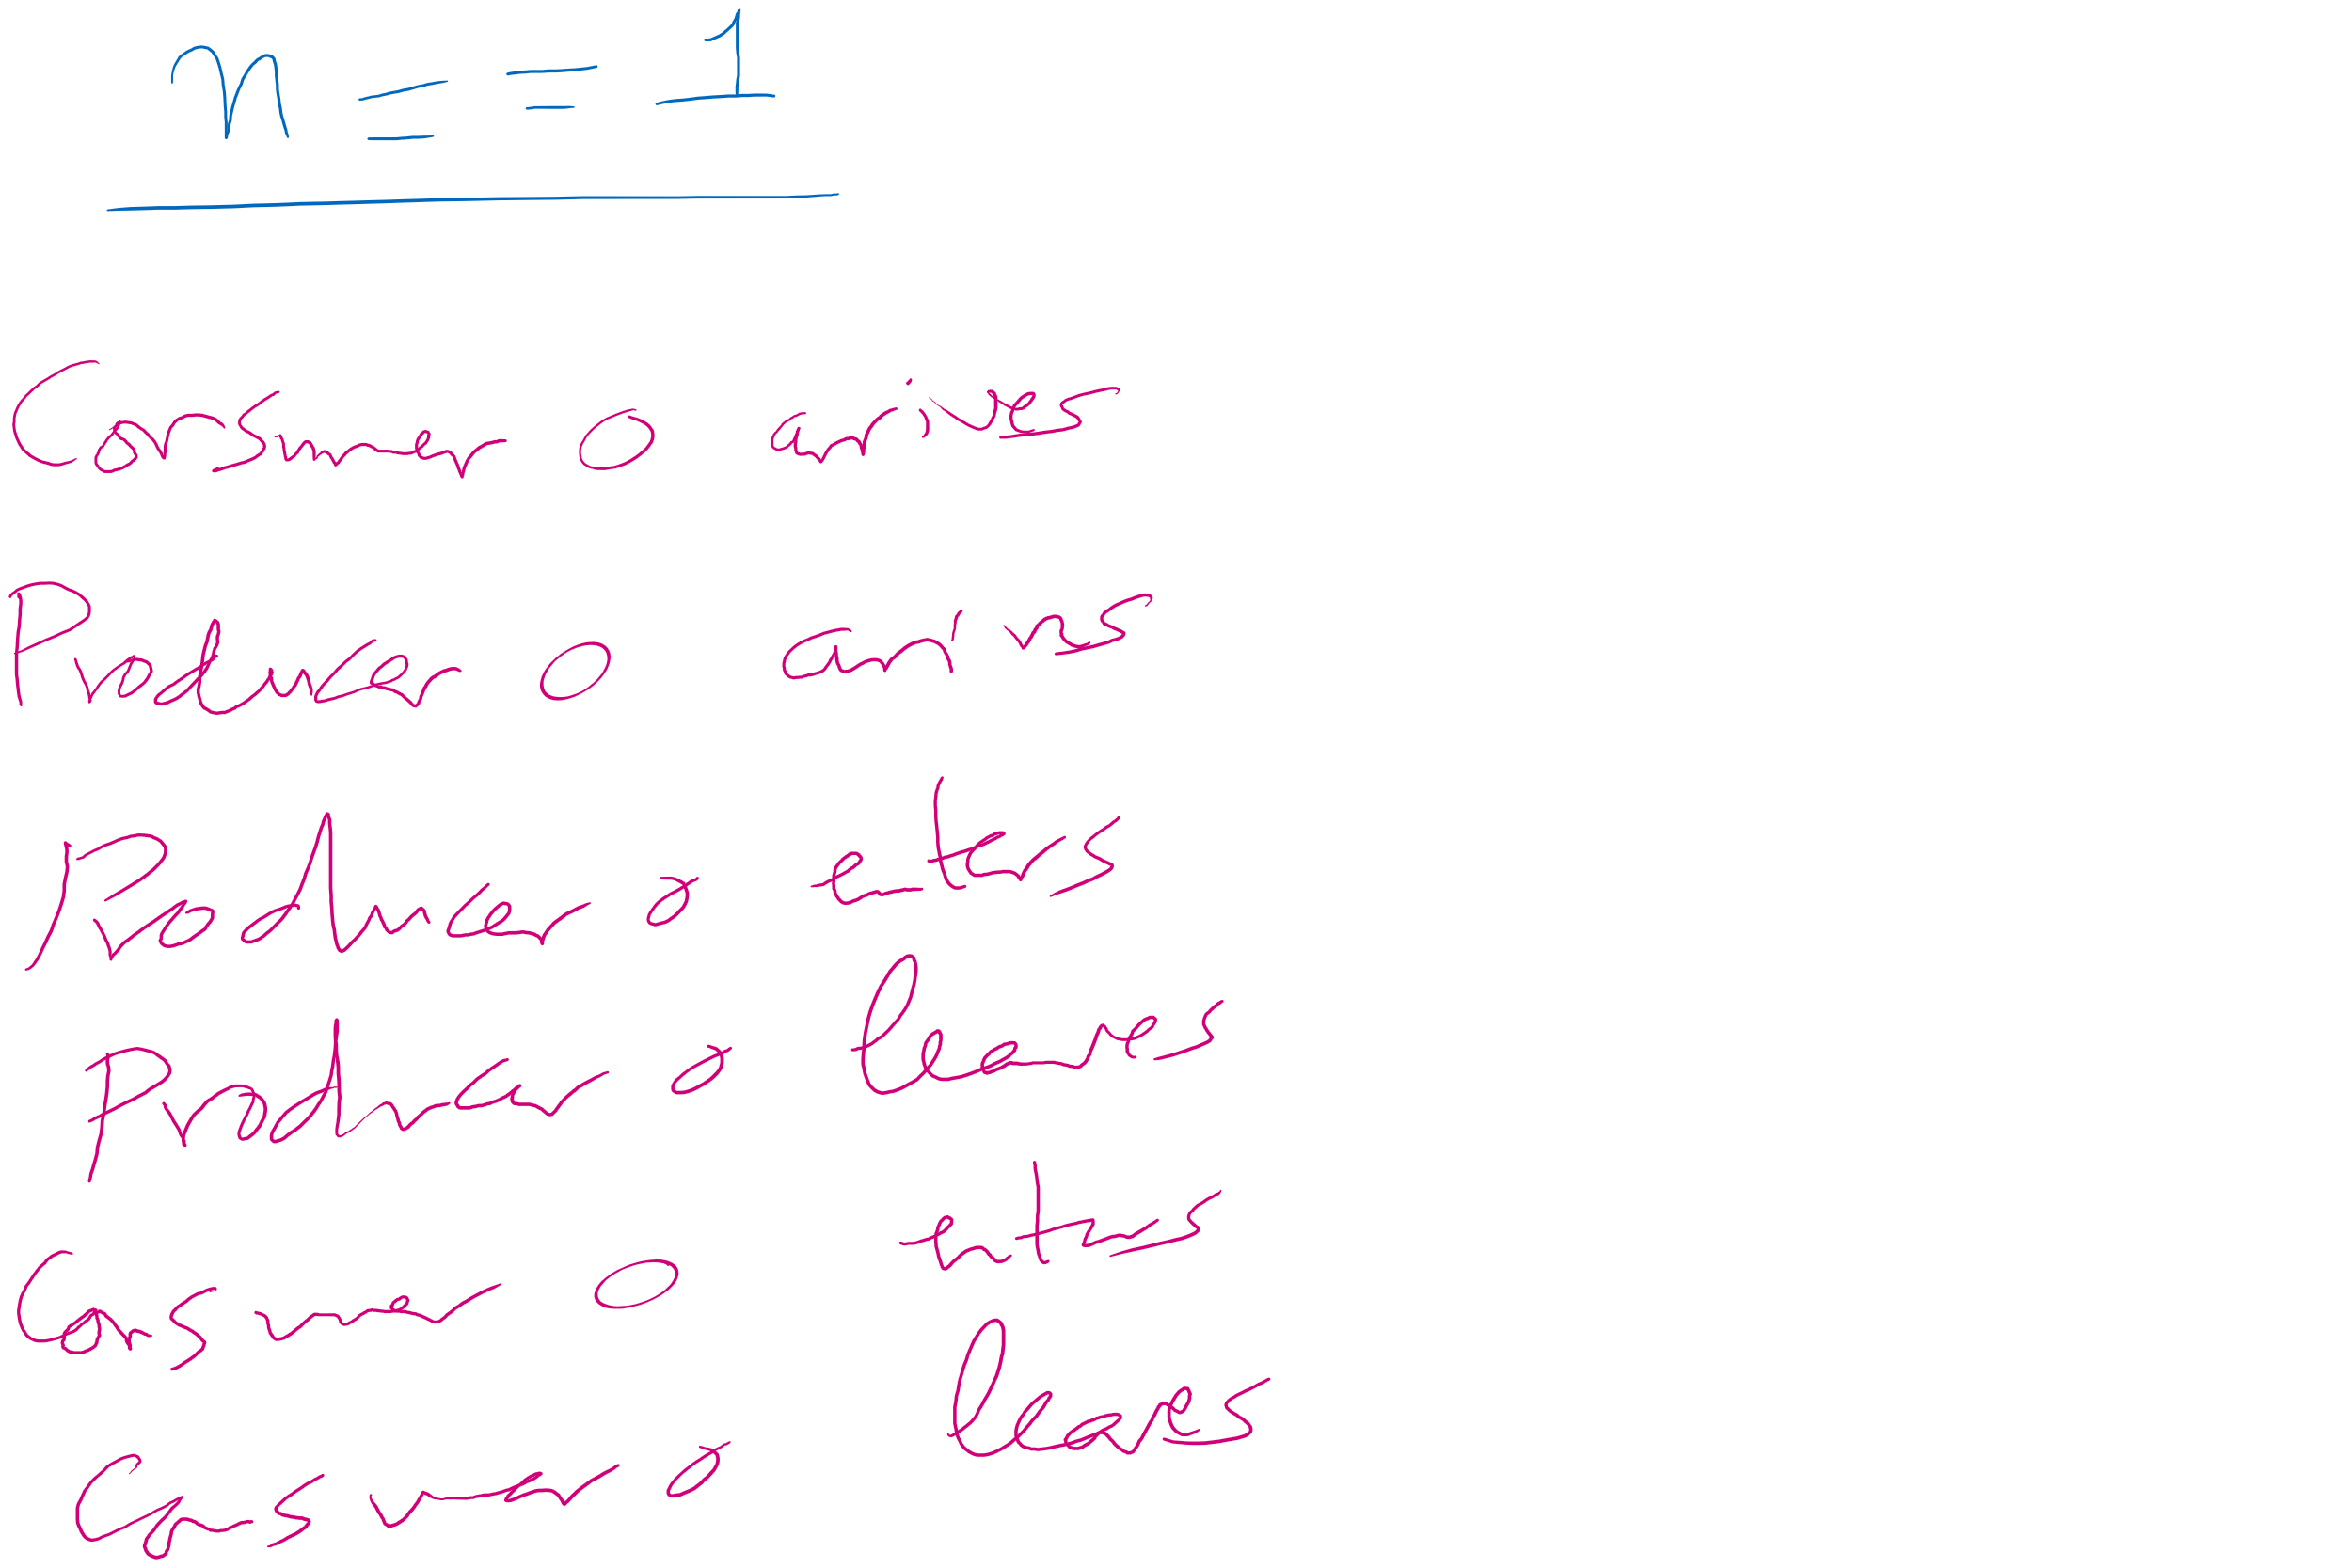 n == 1
Consumer 0 arrives
Producer 0 arrives
Producer 0 enters
Producer 0 leaves
Consumer 0 enters
Consumer 0 leaves